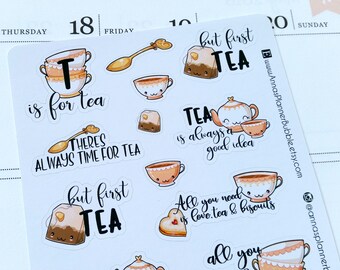 THURSDAY 18 FRIDAY 20 SUNDAY
T
is for tea
but first
TEA
THERE'S
ALWAYS TIME FOR TEA
TEA
is always a
good idea
but first
TEA
All you need
is love, tea & biscuits
all you
www.AnnasPlannerBubble.etsy.com
@annasplannerbubble